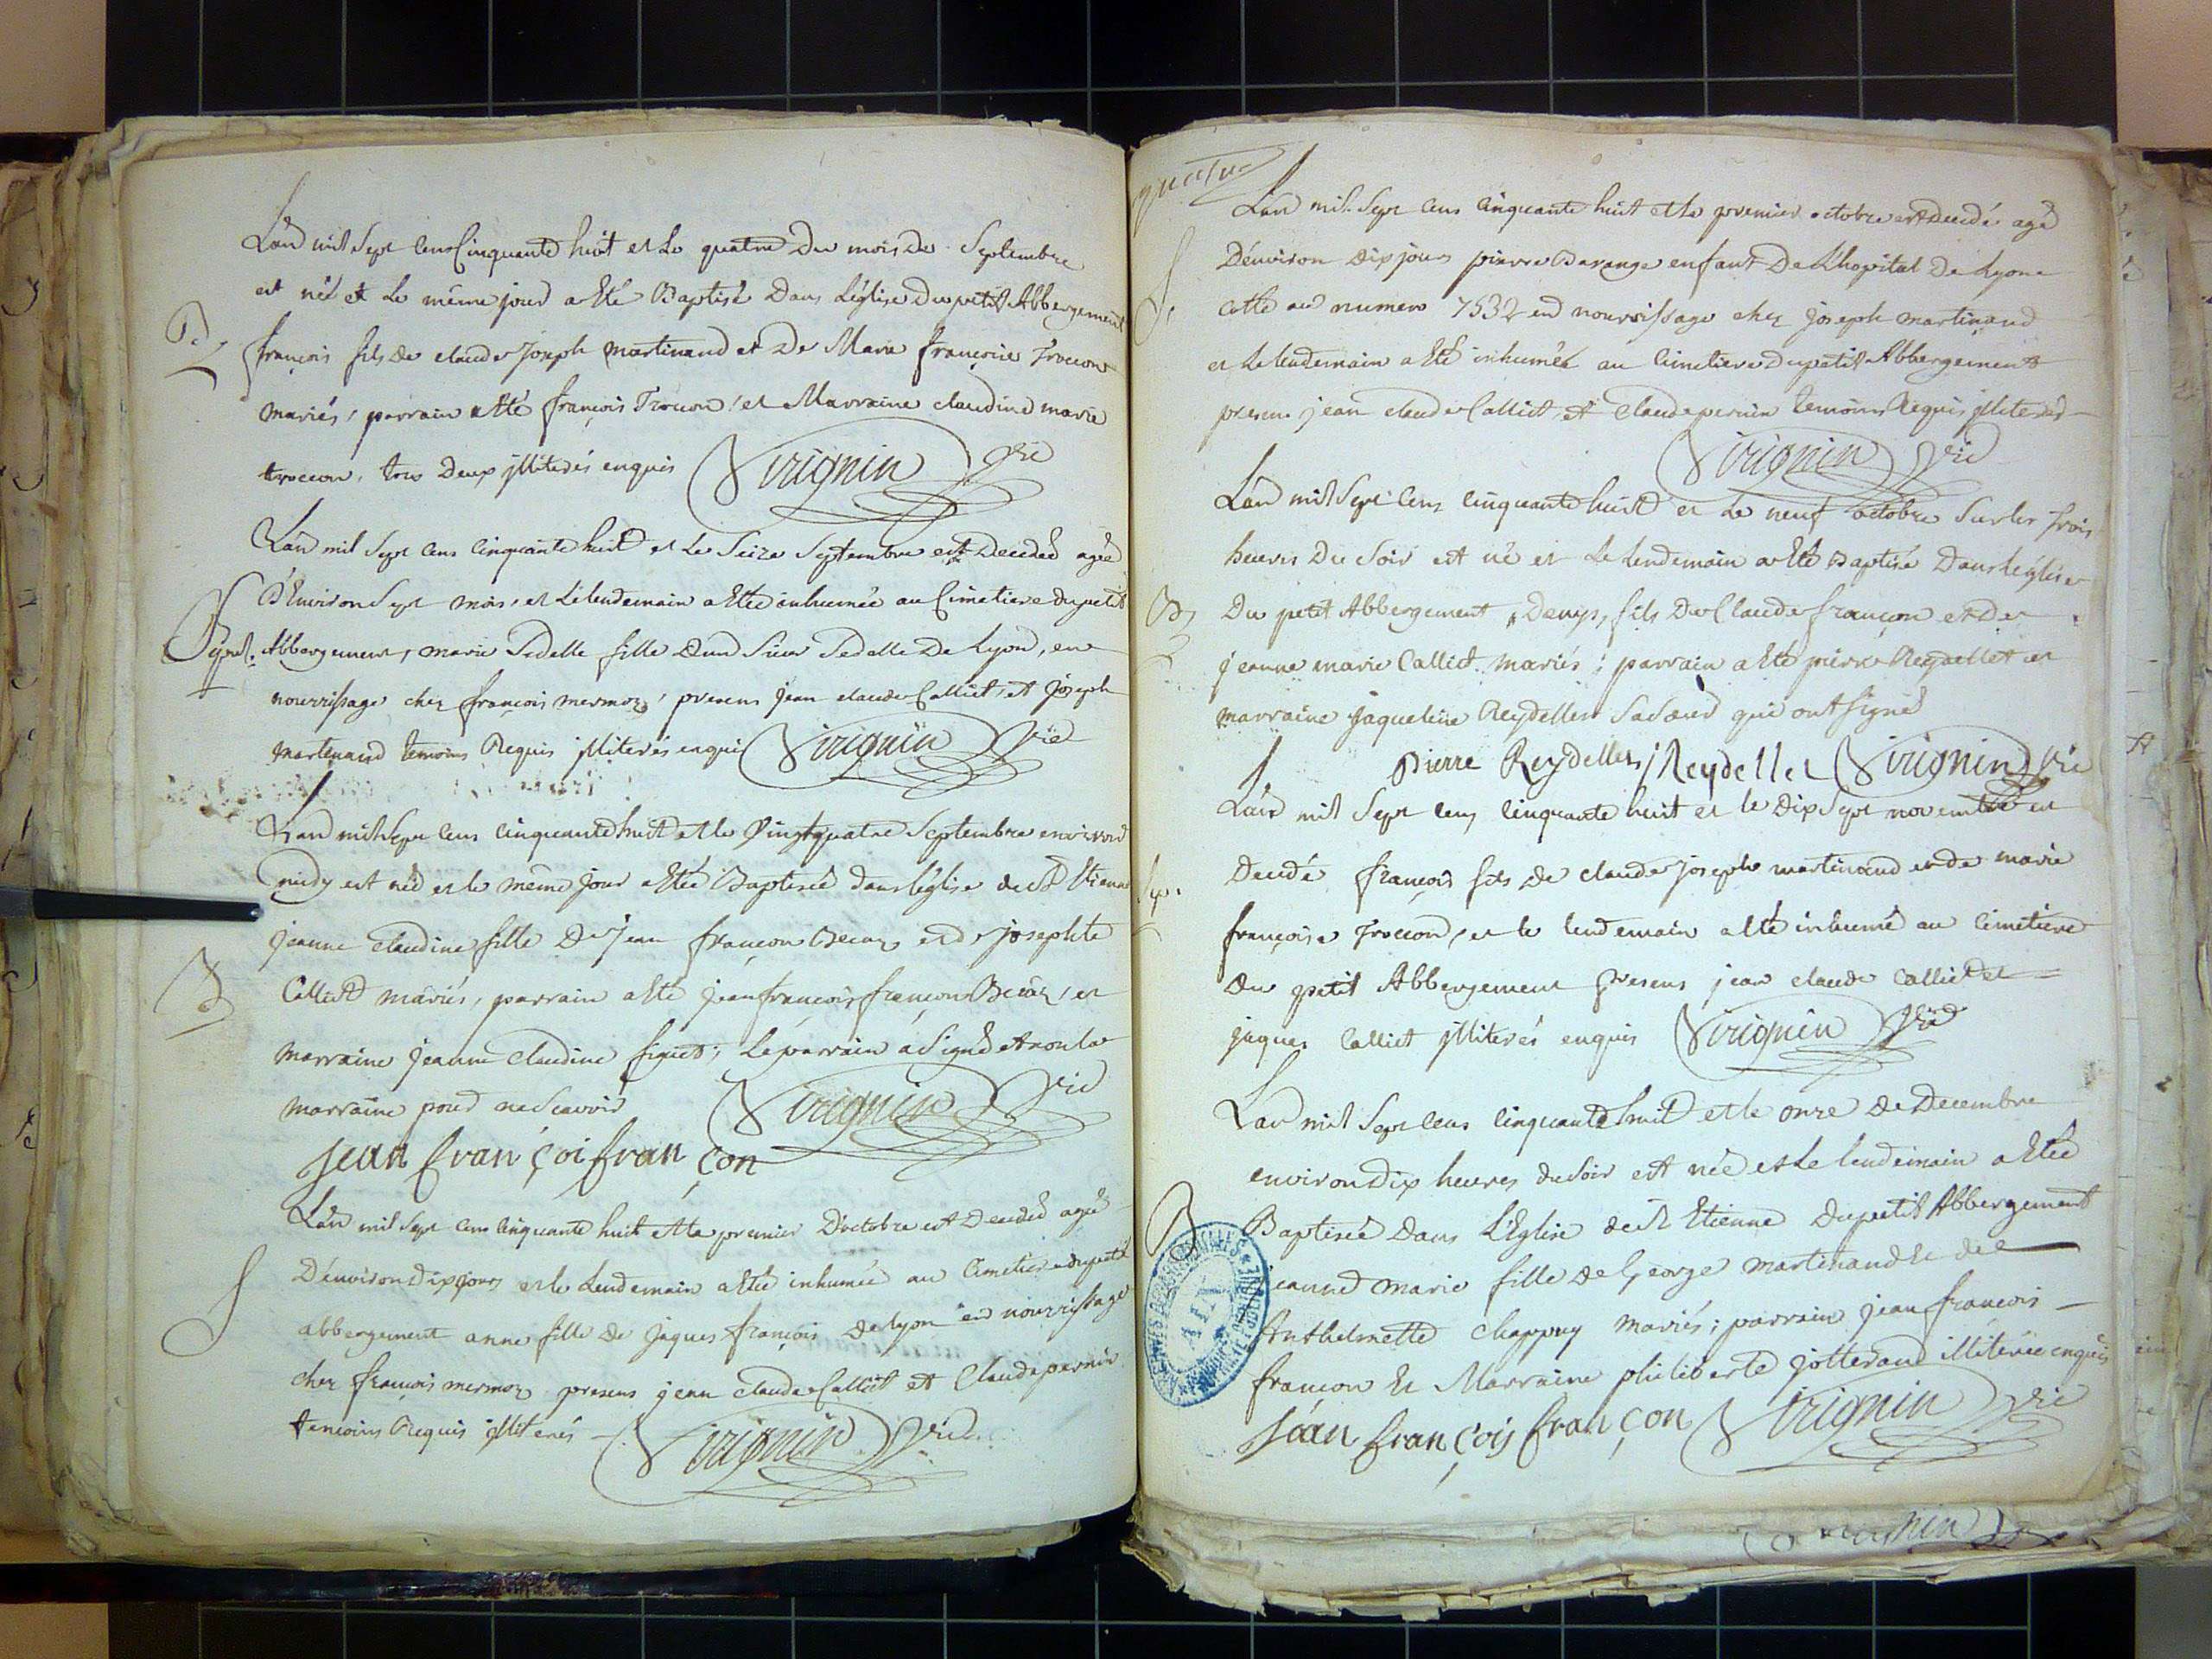 L'an mil sept cens cinquante huit et le quatre du mois de Septembre
est né et le même jour a eté Baptisé dans l'église du petit Abbergement
B.
françois fils de claude Joseph martinand et de Marie françoise Troccon
mariés, parrain a eté françois Troccon, et Marraine claudine marie
troccon, tous deux illiterés enquis Virignin vic
L'an mil sept cens cinquante huit et le seize Septembre est decedée agée
d'Environ sept mois, et le lendemain a etée inhumée au Cimetiere du petit
Sepul.
Abbergement, marie Sedelle fille d'un Sieur Sedelle de Lyon, en
nourrissage chez françois mermoz, presens jean claude Calliet, et joseph
martinand temoins Requis illiterés enquis Virignin vic
L'an mil sept cens cinquante huit et le vingt quatre Septembre environ
midy est née et le même jour a etée Baptisée dans l'église de St Etienne
jeanne claudine fille de jean françon et de josephte
B
Calliet mariés, parrain a eté jean françois françon et
marraine jeanne claudine figuet; le parrain a signé et non la
marraine pour ne scavoir Virignin vic
jean françoi françon
L'an mil sept cens cinquante huit et le premier d'octobre est decedée agée
S
d'environ dix jours et le lendemain a etée inhumée au Cimetiere du petit
abbergement anne fille de jaques françois de lyon en nourrissage
chez françois mermoz presens jean claude Calliet et Claude pernin
temoins Requis illiterés Virignin vic
quatre
L'an mil sept cens cinquante huit et le premier octobre est decedé agé
S
d'environ dix jours pierre Barange enfant de L'hopital de Lyon
cotté au numero 7532 en nourrissage chez joseph martinand
et le lendemain a eté inhumé au Cimetiere du petit Abbergement
presens jean claude Calliet et Claude pernin temoins Requis illiterés
Virignin vic
L'an mil sept cens cinquante huit et le neuf octobre sur les trois
heures du soir est né et le lendemain a eté Baptisé dans l'eglise
B
du petit Abbergement, Denys, fils de Claude françon et de
jeanne marie Calliet mariés; parrain a eté pierre Reydellet et
marraine jaqueline Reydellet sa sœur qui ont signé
Pierre Reydellet j Reydellet Virignin vic
L'an mil sept cens cinquante huit et le dix sept novembre est
Sep.
decedé françois fils de claude joseph martinand et de marie
françoise Troccon, et le lendemain a eté inhumé au Cimetiere
du petit Abbergement presens jean claude Calliet et
jaques Calliet illiterés enquis Virignin vic
L'an mil sept cens cinquante huit et le onze de Decembre
environ dix heures du soir est née et le lendemain a etée
B
Baptisée dans L'Eglise de St Etienne du petit Abbergement
jeanne marie fille de George martinand et de
Anthelmette Chappuy mariés; parrain jean françois
françon et Marraine philiberte jotterand illiterée enquis
jean françois françon Virignin vic
AIN